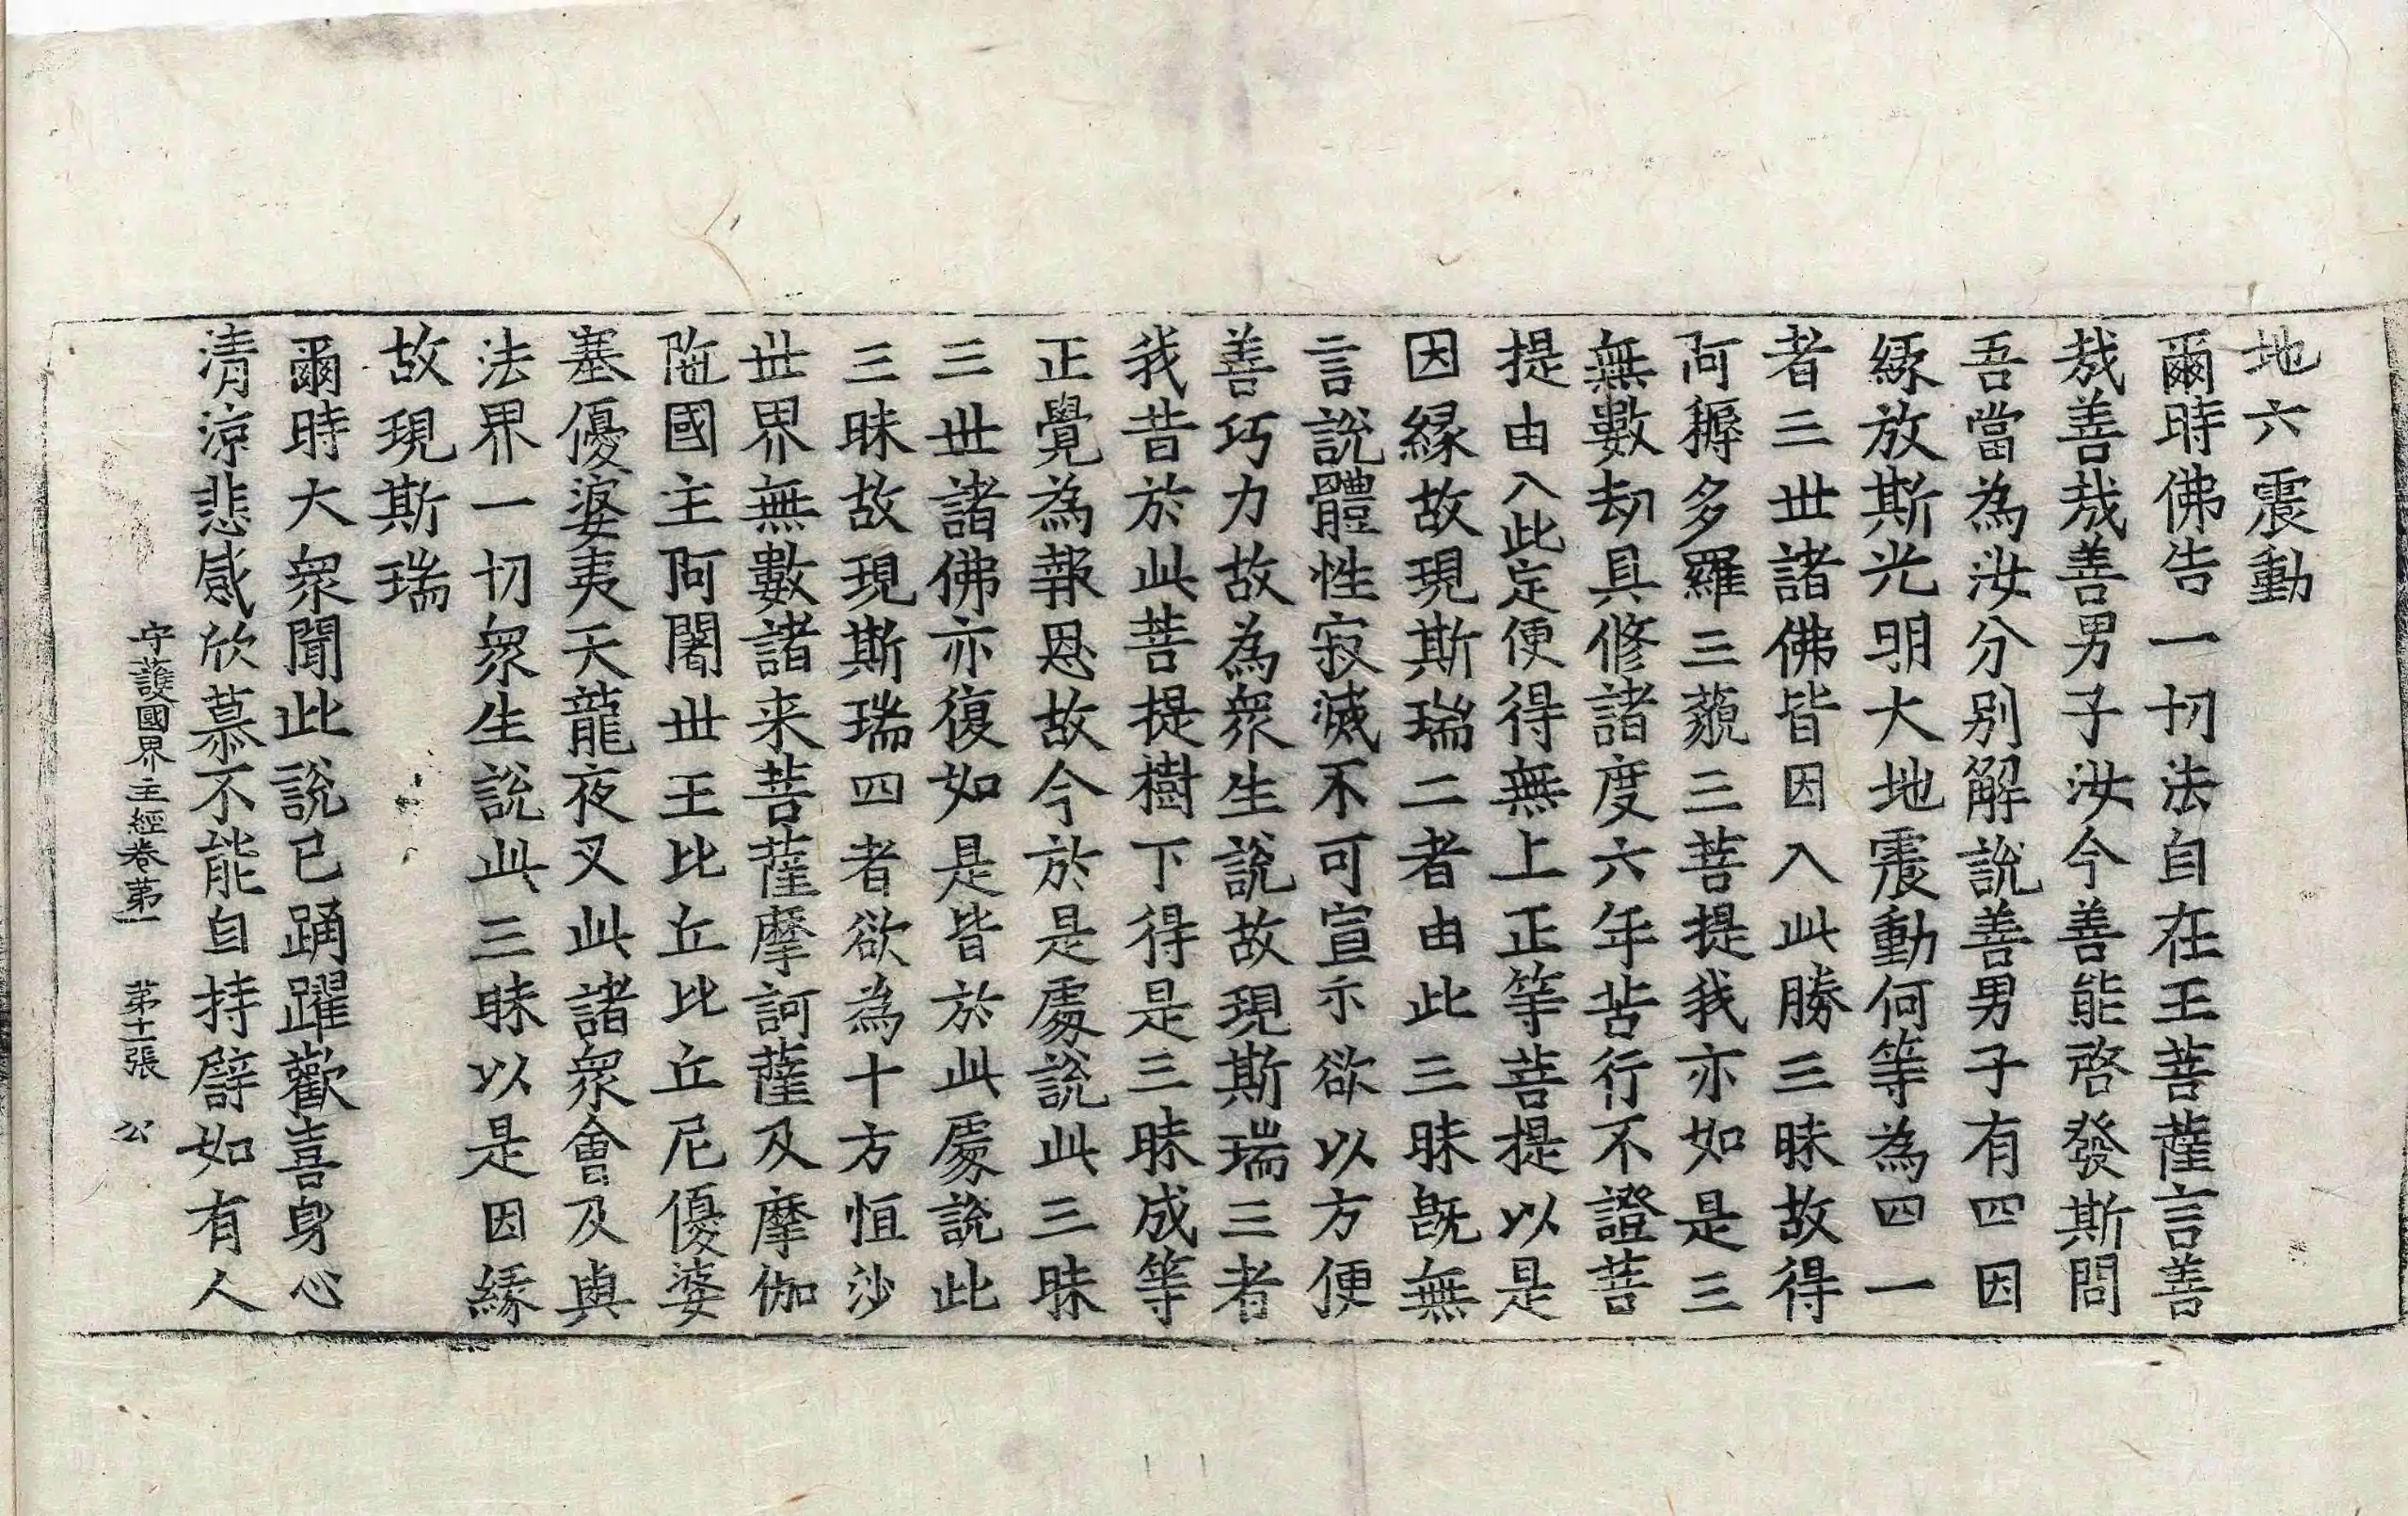 地六震動
爾時佛告一切法自在王菩薩言善
哉善哉善男子汝今善能啓發斯問
吾當為汝分别解説善男子有四因
縁放斯光明大地震動何等為四一
者三世諸佛皆因入此勝三昧故得
阿耨多羅三藐三菩提我亦如是三
無數劫具修諸度六年苦行不證菩
提由入此定便得無上正等菩提以是
因縁故現斯瑞二者由此三昧既無
言説體性寂滅不可宣示欲以方便
善巧力故為衆生説故現斯瑞三者
我昔於此菩提樹下得是三昧成等
正覺為報恩故今於是處説此三昧
三世諸佛亦復如是皆於此處説此
三昧故現斯瑞四者欲為十方恒沙
世界無數諸来菩薩摩訶薩及摩伽
陁國主阿闍世王比丘比丘尼優婆
塞優婆夷天龍夜叉此諸衆會及與
法界一切衆生説此三昧以是因縁
故現斯瑞
爾時大衆聞此説已踊躍歡喜身心
清涼悲感欣慕不能自持譬如有人
守護國界主經卷苐一 苐十二張 公